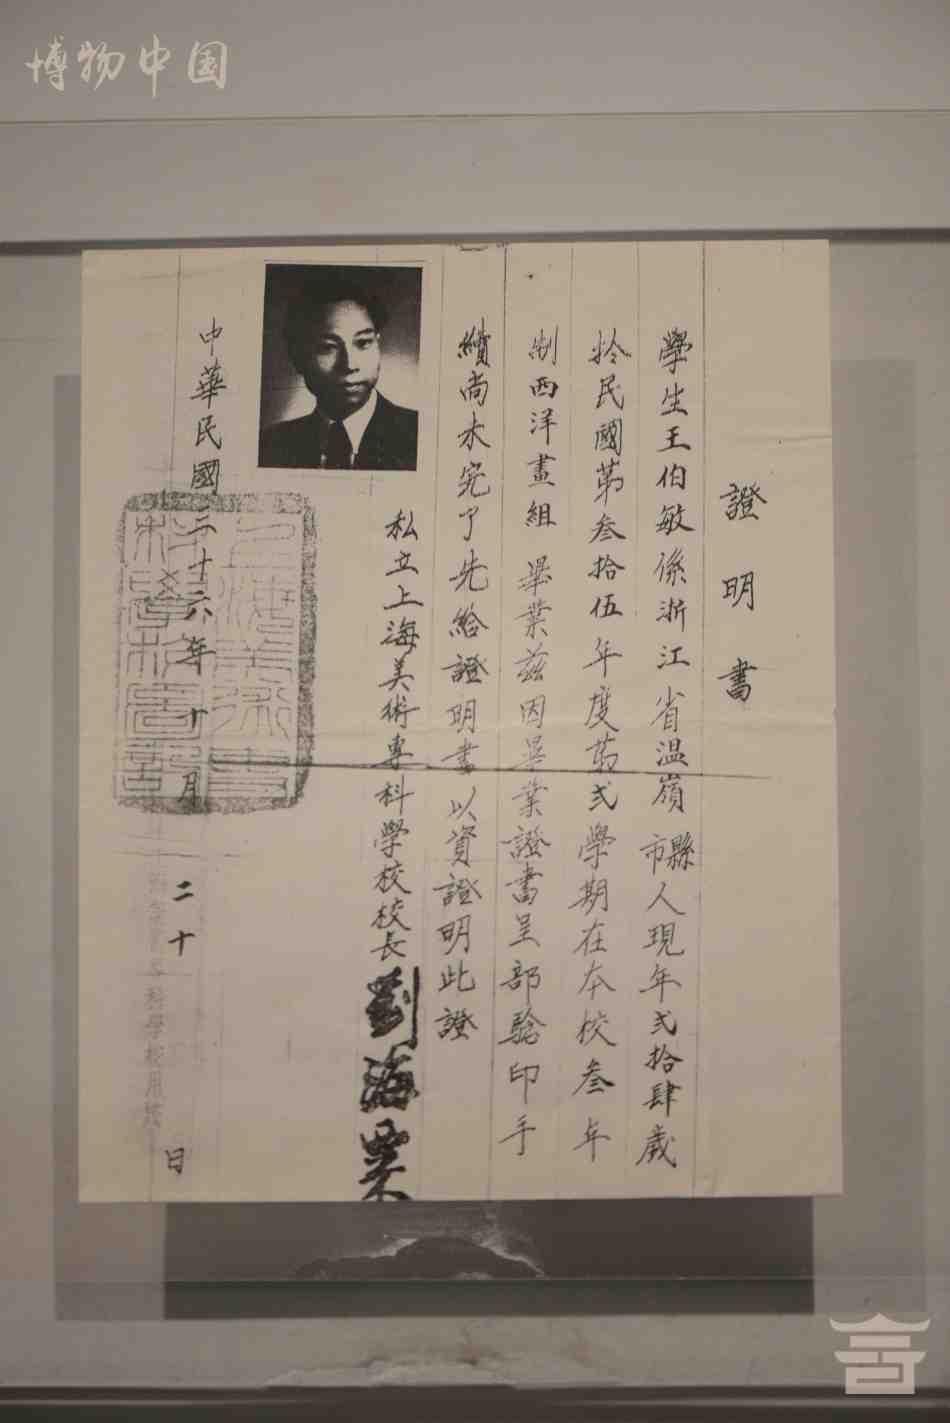 博物中国
證明書
學生王伯敏係浙江省温嶺縣市人現年弍拾肆歲
於民國第叁拾伍年度第弍學期在本校叁年
制西洋畫組畢業茲因畢業證書呈部驗印手
續尚未完了先給證明書以資證明此證
私立上海美術專科學校校長劉海粟
中華民國三十六年十月二十日